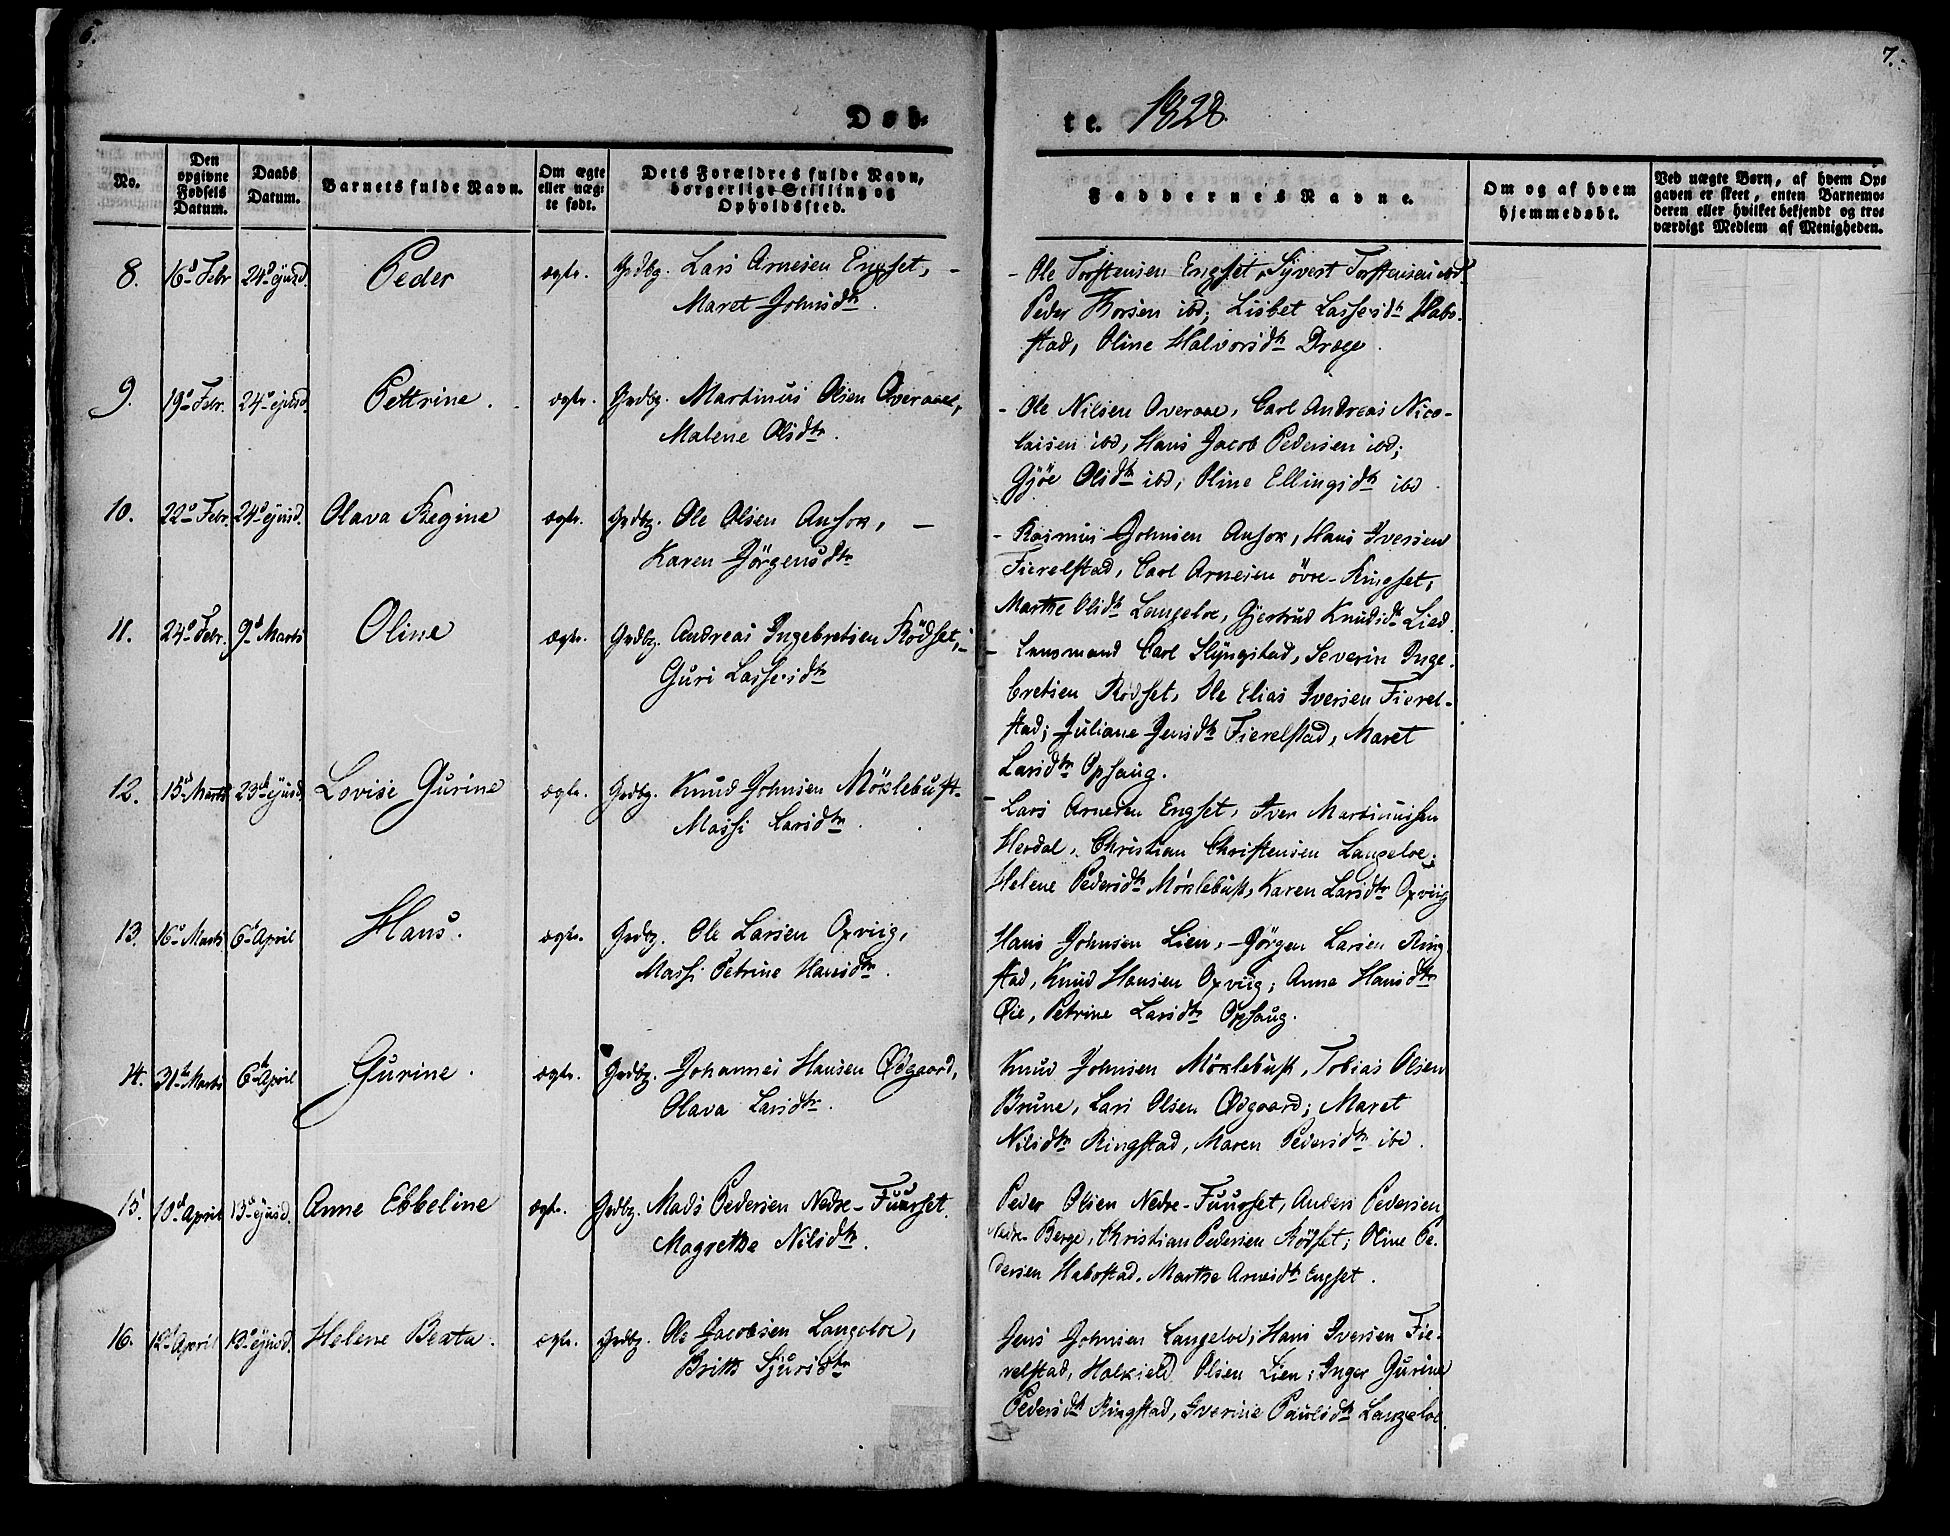 6.
7.
Døb-
te. 1828.
No.
Den opgivne Fødsels Datum.
Daabs Datum.
Barnets fulde Navn.
Om ægte eller uægte født.
Dets Forældres fulde Navn, borgerlige Stilling og Opholdssted.
Faddernes Navne.
Om og af hvem hjemmedøbt.
Ved uægte Børn, af hvem Opgaven er skeet, enten Barnemoderen eller hvilket bekjendt og troværdigt Medlem af Menigheden.
8. 16d Febr 24d ejusd. Peder ægte. Grdbg. Lars Arnesen Engset, –
Maret Johnsdtr.
– Ole Torstensen Engset, Syvert Torstensen ibd.
Peder Thorsen ibd; Lisbet Lassesdtr Habo-
stad, Oline Halvorsdtr Drage.
9. 19d Febr. 24d ejusd. Pettrine. ægte. Grdbg. Martinus Olsen Overaae,
Malene Olsdtr.
– Ole Nilsen Overaae, Carl Andreas Nico-
laisen ibd, Hans Jacob Pedersen ibd;
Gjøe Olsdtr ibd, Oline Ellingsdtr ibd.
10. 22d Febr. 24d ejusd. Olava Regine ægte. Grdbg. Ole Olsen Ansok, –
Karen Jörgensdtr
– Rasmus Johnsen Ansok, Hans Iversen
Fierelstad, Carl Arnesen övre-Ringset,
Marthe Olsdtr Langeloe, Gjertrud Knudsdtr Lied.
11. 24d Febr. 9d Marts Oline ægte. Grdbg. Andreas Ingebretsen Rödset, –
Guri Lassesdtr
– Lensmand Carl Slyngstad, Severin Inge-
bretsen Rödset, Ole Elias Iversen Fierel-
stad; Juliane Jensdtr Fierelstad, Maret
Larsdtr Opsaug.
12. 15d Marts 23d ejusd. Lovise Gurine ægte. Grdbg. Knud Johnsen Möxlebust.
Massi Larsdtr.
– Lars Arnesen Engset, Iver Martinussen
Herdal, Christian Christensen Langeloe;
Helene Pedersdtr Möxlebust, Karen Larsdtr Oxviig
13. 16d Marts 6d April Hans. ægte. Grdbg. Ole Larsen Oxviig,
Massi Petrine Hansdtr.
Hans Johnsen Lien, Jörgen Larsen Ring-
stad, Knud Hansen Oxviig; Anne Hansdtr
Øie, Petrine Larsdtr Opsaug.
14. 31te Marts 6d April Gurine. ægte. Grdbg. Johannes Hansen Ødgaard,
Olava Larsdtr.
Knud Johnsen Möxlebust, Tobias Olsen
Brune, Lars Olsen Ødgaard; Maret
Nilsdtr Ringstad, Maren Pedersdtr ibd.
15. 10d April 13d ejusd. Anne Ebbeline ægte. Grdbg. Mads Pedersen Nedre-Fuurset.
Magrethe Nilsdtr.
Peder Olsen Nedre-Fuurset, Anders Pedersen
Nedre-Berge, Christian Pedersen Rödset; Oline Pe-
dersen Habostad, Marthe Arnesdtr Engset.
16. 12d April 13d ejusd. Helene Beata. ægte. Grdbg. Ole Jacobsen Langeloe,
Brithe Sjursdtr
Jens Johnsen Langeloe, Hans Iversen Fie-
relstad, Halkield Olsen Lien; Inger Gurine
Pedersdtr Ringstad, Iverine Paulsdtr Langeloe.